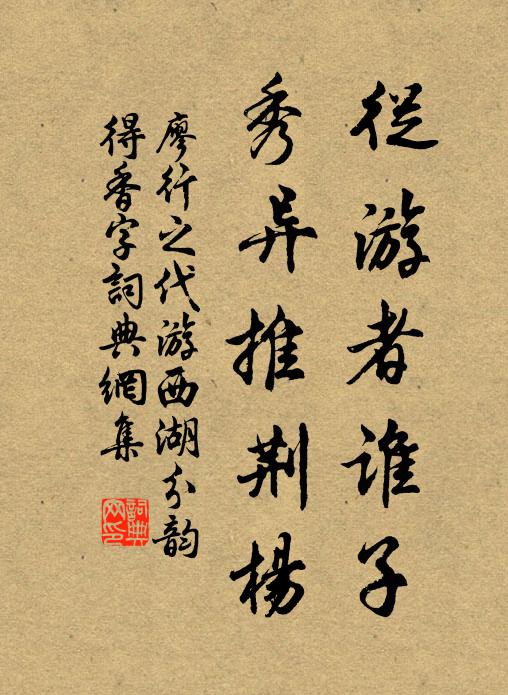 從游者誰子
秀异推荆楊
廖行之代游西湖分韵
得香字詞典網集
詞典
网印